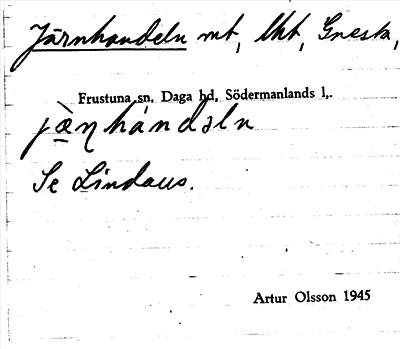 Järnhandeln mt, lht, Gnesta,
Frustuna sn, Daga hd, Södermanlands l,.
jæ̀ṇhándəln
Se Lindaus.
Artur Olsson 1945